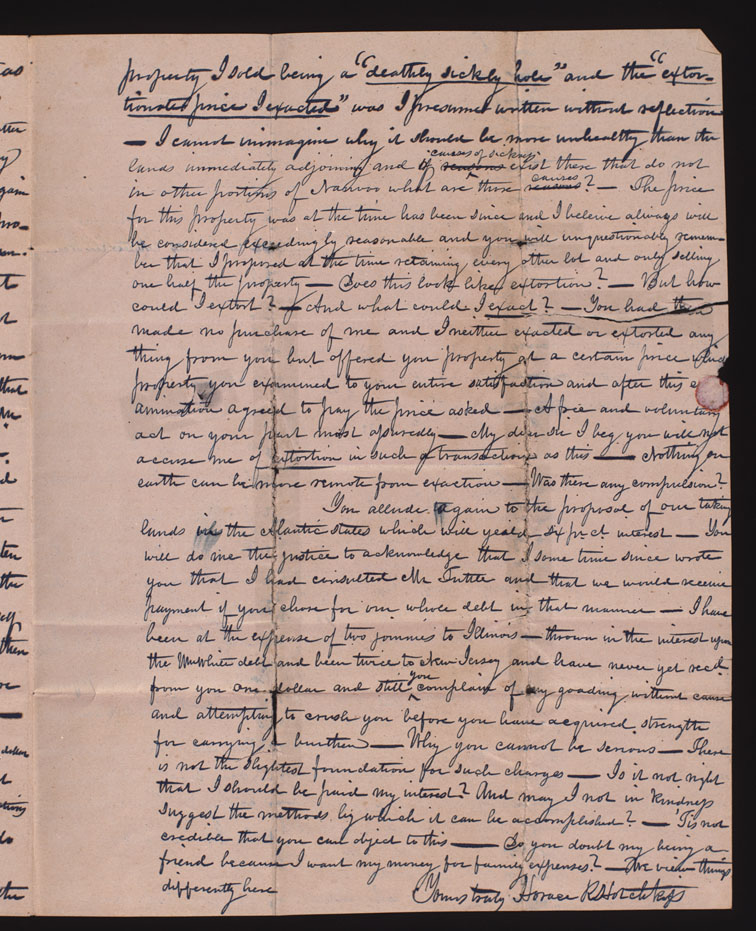 property I sold being a "deathly sickly hole" and the "extor-
tionate price I exacted" was I presume written without reflection
— I cannot immagine why it should be more unhealthy than the
lands immediately adjoining and if reasons causes of sickness exist there that do not
in other portions of Nauvoo what are those reasons causes? — The price
for this property was at the time has been since and I beleive always will
be considered exceedingly reasonable and you will unquestionably remem-
ber that I proposed at the time retaining every other lot and only selling
one half the property — Does this look like extortion? — But how
could I extort? — And what could I exact? — You had
made no purchase of me and I neither exacted or extorted any
thing from you but offered you property at a certain price which
property you examined to your entire satisfaction and after this ex
amination agreed to pay the price asked — A free and voluntary
act on your part most assuredly — My dear Sir I beg you will not
accuse me of extortion in such a transaction as this — Nothing on
earth can be more remote from exaction — Was there any compulsion?
You allude again to the proposal of our taking
lands in the Atlantic States which will yeald six pr. ct. interest — You
will do me the justice to acknowledge that I some time since wrote
you that I had consulted Mr. Tuttle and that we would receive
payment if you chose for our whole debt in that manner — I have
been at the expense of two journies to Illinois — thrown in the interest upon
the Wm White debt and been twice to New-Jersey and have never yet recd.
from you one dollar and still you complain of my goading without cause
and attempting to crush you before you have acquired strength
for carrying a burthen — Why you cannot be serious — There
is not the slightest foundation for such charges — Is it not right
that I should be paid my interest? And may I not in kindness
suggest the methods by which it can be accomplished? — 'Tis not
credible that you can object to this — Do you doubt my being a
friend because I want my money for family expenses? — We view things
differently here
Yours truly Horace R Hotchkiss